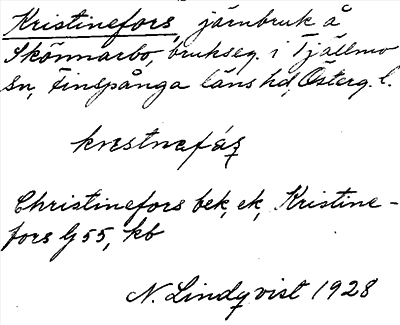 Kristinefors, järnbruk å
Skönnarbo, brukseg. i Tjällmo
sn, Finspånga läns hd, Österg. l.
krɪstɪnəfáʂ
Christinefors bek, ek, Kristine-
fors G 55, kb
N. Lindqvist 1928